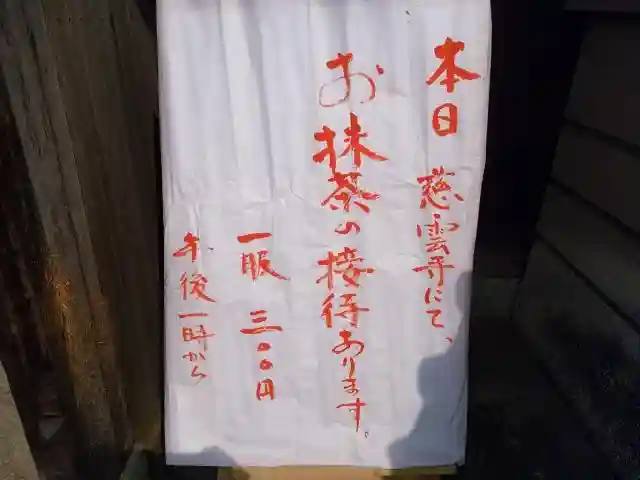 本日 慈雲寺にて、
お抹茶の接待あります。
一服 三〇〇円
午後一時から